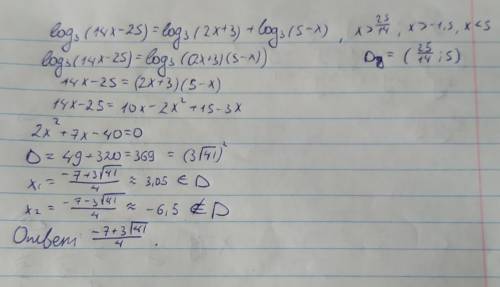 log₃(14x-25)=log₃(2x+3)+log₃(5-x), x>25/14, x>-1,5, x<5
log₃(14x-25)=log₃((2x+3)(5-x)) D₀=(25/14;5)
14x-25=(2x+3)(5-x)
14x-25=10x-2x²+15-3x
2x²+7x-40=0
D=49+320=369=(3√41)²
x₁=(-7+3√41)/4≈3,05∈D
x₂=(-7-3√41)/4≈-6,5∉D
Ответ (-7+3√41)/4.